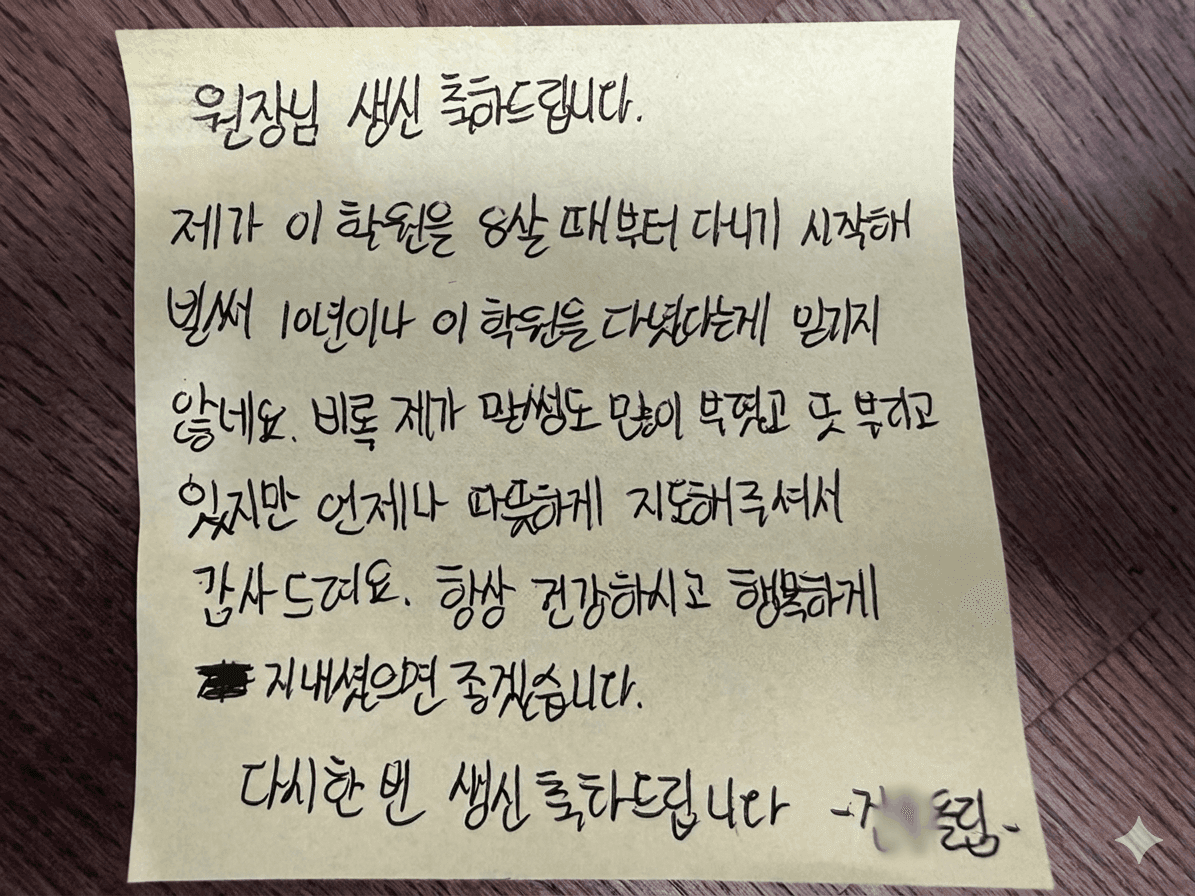 원장님 생신 축하드립니다.
제가 이 학원을 8살 때부터 다니기 시작해
벌써 10년이나 이 학원을 다녔다는게 믿기지
않네요. 비록 제가 말썽도 많이 부렸고 또 부리고
있지만 언제나 따뜻하게 지도해주셔서
감사드려요. 항상 건강하시고 행복하게
지내셨으면 좋겠습니다.
다시한번 생신 축하드립니다 - 올림-